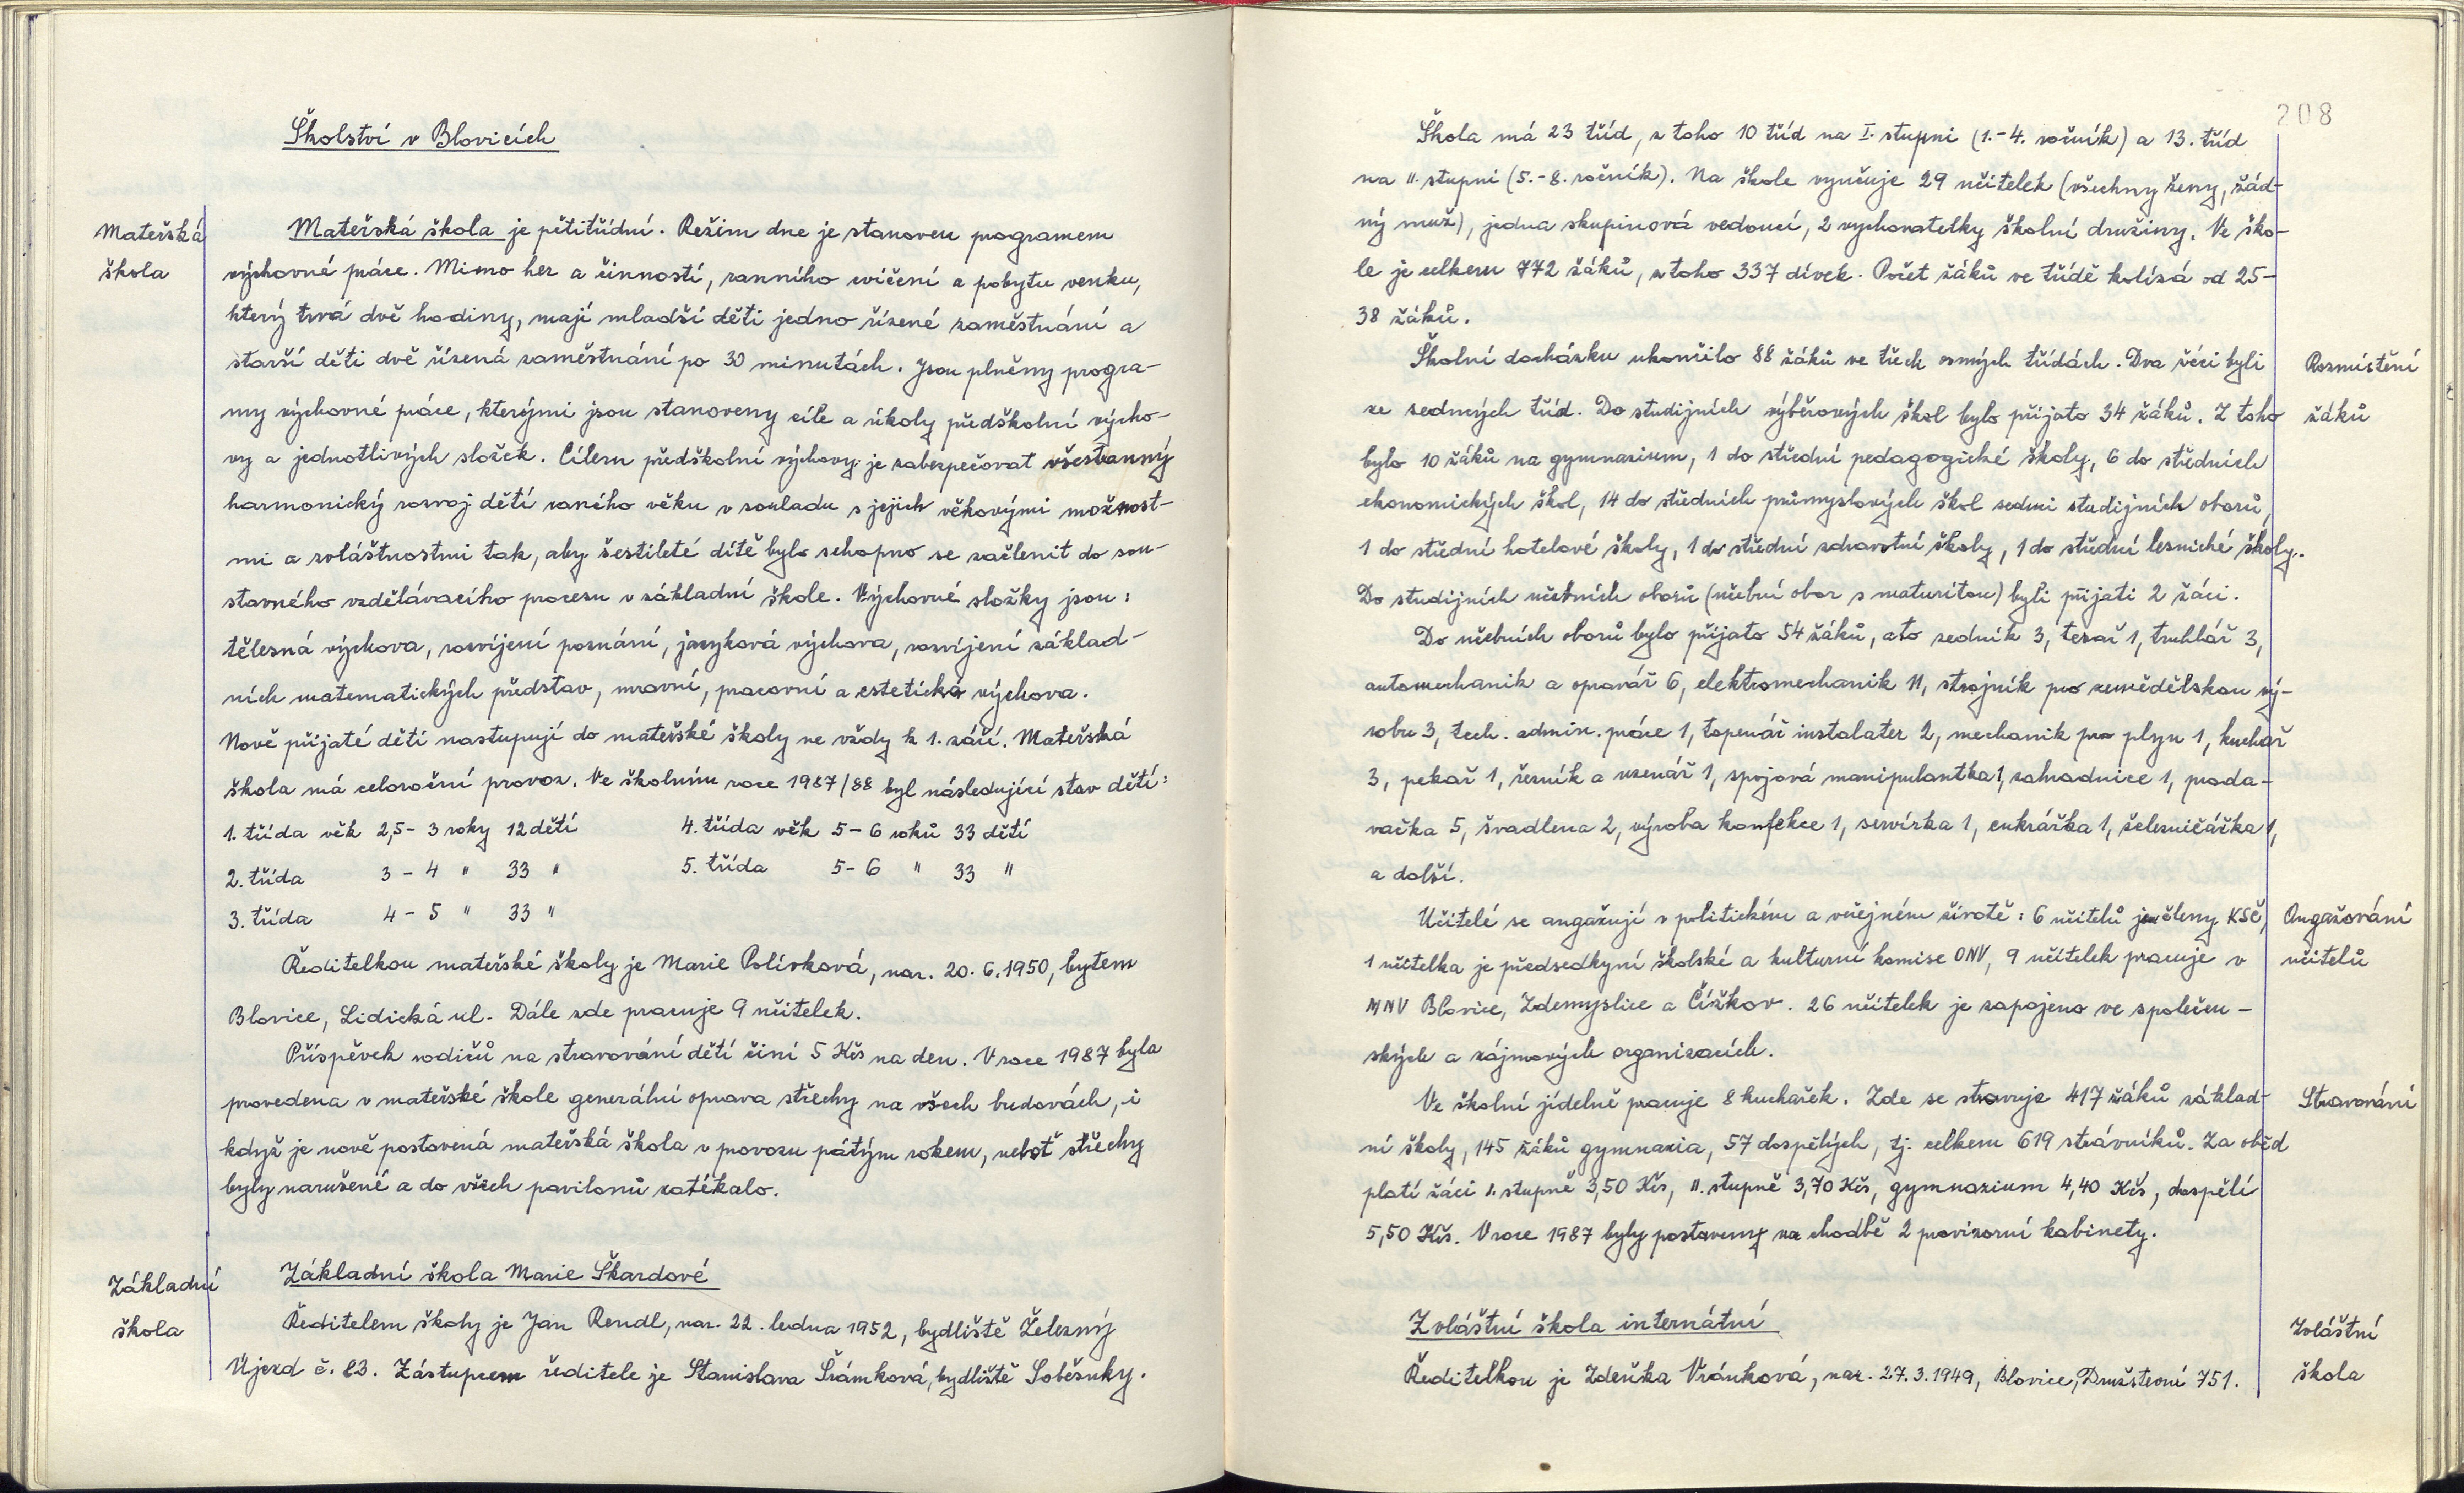 Školství v Blovicích
Mateřská
škola
Mateřská škola je pětitřídní. Režim dne je stanoven programem
výchovné práce. Mimo her a činností, ranního cvičení a pobytu venku,
který trvá dvě hodiny, mají mladší děti jedno řízené zaměstnání a
starší děti dvě řízená zaměstnání po 30 minutách. Jsou plněny progra-
my výchovné práce, kterými jsou stanoveny cíle a úkoly předškolní výcho-
vy a jednotlivých složek. Cílem předškolní výchovy je zabezpečovat všestranný
harmonický rozvoj dětí raného věku v souladu s jejich věkovými možnost-
mi a zvláštnostmi tak, aby šestileté dítě bylo schopno se začlenit do sou-
stavného vzdělávacího procesu v základní škole. Výchovné složky jsou:
tělesná výchova, rozvíjení poznání, jazyková výchova, rozvíjení základ-
ních matematických představ, mravní, pracovní a estetická výchova.
Nově přijaté děti nastupují do mateřské školy ve vždy k 1. září. Mateřská
škola má celoroční provoz. Ve školním roce 1987/88 byl následující stav dětí:
1. třída věk 2,5-3 roky 12 dětí 4. třída věk 5-6 roků 33 dětí
2. třída 3-4 " 33 " 5. třída 5-6 " 33 "
3. třída 4-5 " 33 "
Ředitelkou mateřské školy je Marie Polívková, nar. 20.6.1950, bytem
Blovice, Lidická ul. Dále zde pracuje 9 učitelek.
Příspěvek rodičů na stravování dětí činí 5 Kčs na den. V roce 1987 byla
provedena v mateřské škole generální oprava střechy na všech budovách, i
když je nově postavená mateřská škola v provozu pátým rokem, neboť střechy
byly narušené a do všech pavilonů zatékalo.
Základní
škola
Základní škola Marie Škardové
Ředitelem školy je Jan Rendl, nar. 22. ledna 1952, bydliště Železný
Újezd č. 83. Zástupcem ředitele je Stanislava Šrámková, bydliště Soběsuky.
208
Škola má 23 tříd, z toho 10 tříd na I. stupni (1.-4. ročník) a 13. tříd
na II. stupni (5.-8. ročník). Na škole vyučuje 29 učitelek (všechny ženy, žád-
ný muž), jedna skupinová vedoucí, 2 vychovatelky školní družiny. Ve ško-
le je celkem 772 žáků, z toho 337 dívek. Počet žáků ve třídě kolísá od 25-
38 žáků.
Rozmístění
žáků
Školní docházku ukončilo 88 žáků ve třech osmých třídách. Dva žáci byli
ze sedmých tříd. Do studijních výběrových škol bylo přijato 34 žáků. Z toho
bylo 10 žáků na gymnazium, 1 do střední pedagogické školy, 6 do středních
ekonomických škol, 14 do středních průmyslových škol sedmi studijních oborů,
1 do střední hotelové školy, 1 do střední zdravotní školy, 1 do střední lesnické školy.
Do studijních učebních oborů (učební obor s maturitou) byli přijati 2 žáci.
Do učebních oborů bylo přijato 54 žáků, a to zedník 3, tesař 1, truhlář 3,
automechanik a opravář 6, elektromechanik 11, strojník pro zemědělskou vý-
robu 3, tech. admin. práce 1, topenář instalater 2, mechanik pro plyn 1, kuchař
3, pekař 1, řezník a uzenář 1, spojová manipulantka 1, zahradnice 1, proda-
vačka 5, švadlena 2, výroba konfekce 1, servírka 1, cukrářka 1, železničářka 1,
a další.
Angažování
učitelů
Učitelé se angažují v politickém a veřejném životě: 6 učitelů jsou členy KSČ,
1 učitelka je předsedkyní školské a kulturní komise ONV, 9 učitelek pracuje v
MNV Blovice, Zdemyslice a Čížkov. 26 učitelek je zapojeno ve společen-
ských a zájmových organizacích.
Stravování
Ve školní jídelně pracuje 8 kuchařek. Zde se stravuje 417 žáků základ-
ní školy, 145 žáků gymnazia, 57 dospělých, tj. celkem 619 strávníků. Za oběd
platí žáci I. stupně 3,50 Kčs, II. stupně 3,70 Kčs, gymnazium 4,40 Kčs, dospělí
5,50 Kčs. V roce 1987 byly postaveny na chodbě 2 provizorní kabinety.
Zvláštní
škola
Zvláštní škola internátní
Ředitelkou je Zdeňka Vránková, nar. 27.3.1949, Blovice, Družstevní 751.